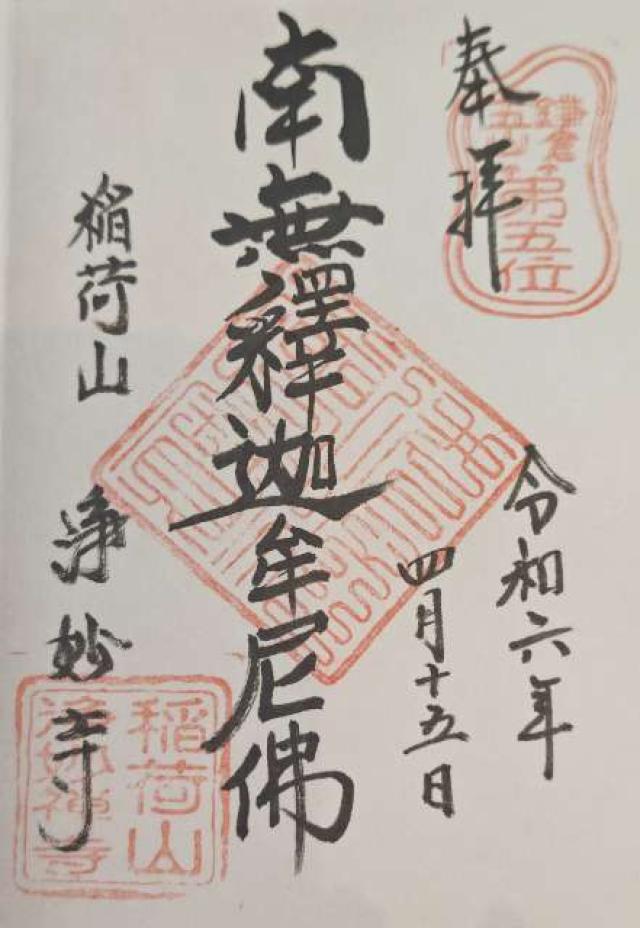 奉拝
鎌倉
五山第五位
令和六年
四月十五日
南無釋迦牟尼佛
稲荷山 浄妙寺
稲荷山
浄妙禅寺